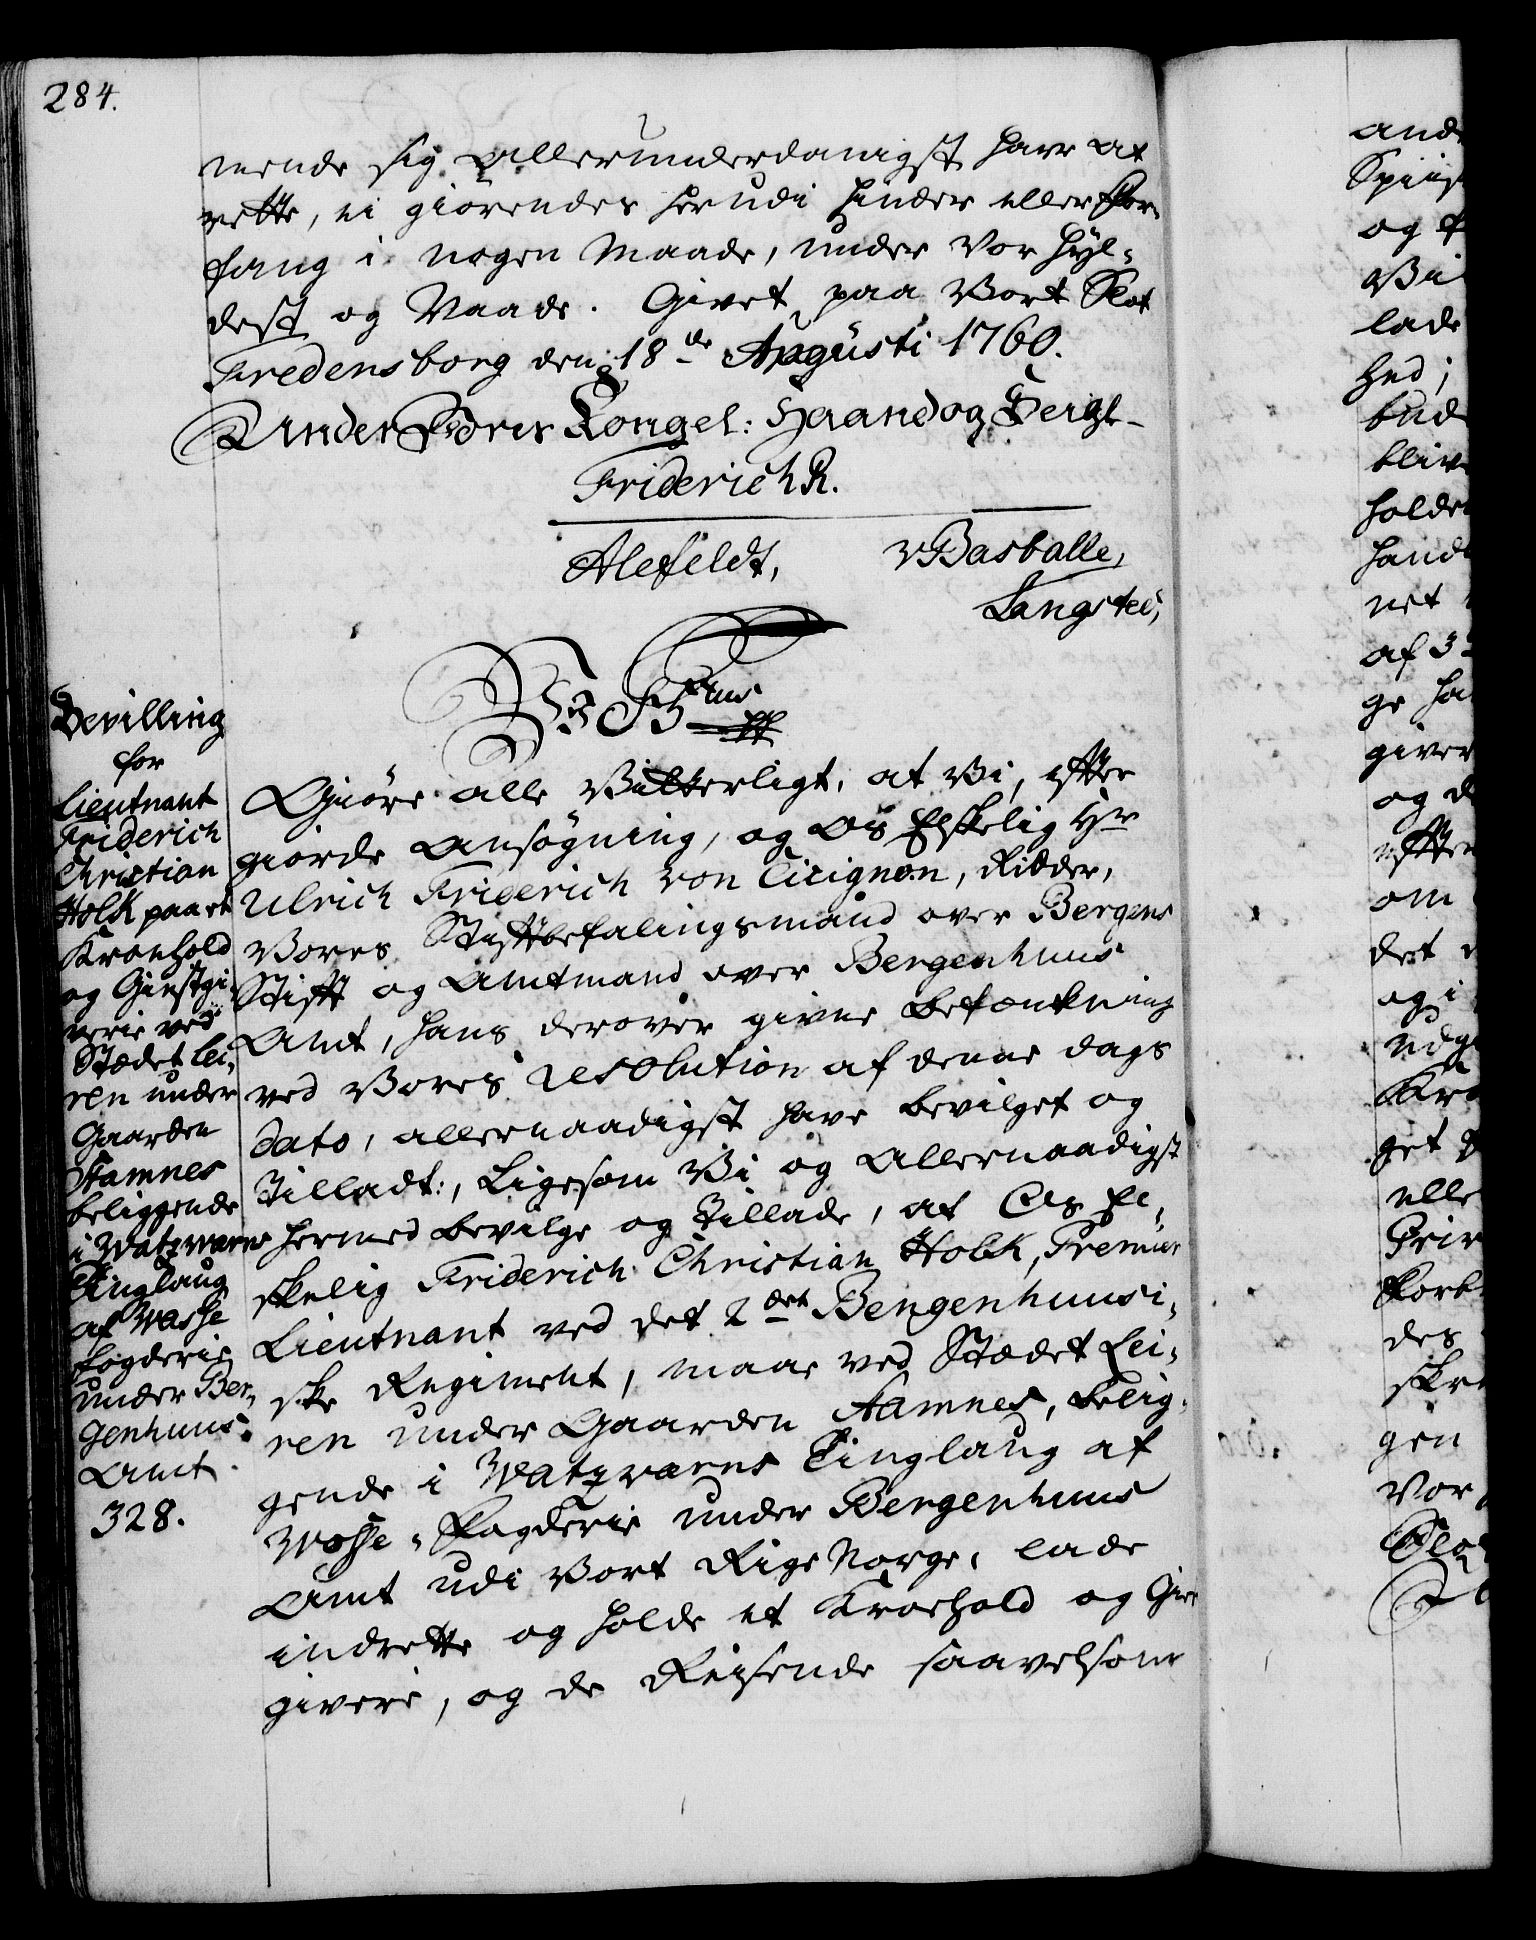 284.
mende sig allerunderdanigst have at
rette, ei giörendes herudi Hinder eller For-
fang i nogen Maade, under Vor Hyl-
dest og Naade. Givet paa Vort Slot
Fredensborg den 18de Augusti 1760.
Under Vores Kongel: Haand og Seigl-
Friderich R.
Alefeldt, vBasballe,
Langsted,
Wi F 5tus
Bevilling
for
Lieutnant
Friderich
Christian
Holk paa et
Kroehold
og Giestgi-
verie ved
Stædet Lei-
ren under
Gaarden
Stamnes
beliggende
i Watzwarns
Tinglaug
af Wosse
Fogderie
under Ber-
genhuus-
Amt.
328.
Giöre alle Vitterligt, at Vi, efter
giorde Ansögning, og Os Elskelig Hr
Ulrich Friderich von Cicignon, Ridder,
Vores Stiftbefalingsmand over Bergens
Stift og Amtmand over Bergenhuus
Amt, hans derover givne Betænkning
ved Vores Resolution af denne dags
dato, allernaadigst have bevilget og
Tilladt:, Ligesom Vi og Allernaadigst
hermed bevilge og Tillade, at Os El-
skelig Friderich Christian Holck, Premier
Lieutnant ved det 2det Bergenhuusi-
ske Regiment, maae ved Stædet Lei-
ren under Gaarden Stamnes, belig-
gende i Watzwarns Tinglaug af
Wosse-Fogderie under Bergenhuus
Amt udi Vort Rige Norge, lade
indrette og holde et Kroehold og Giest
giverie, og de Reisende saavelsom